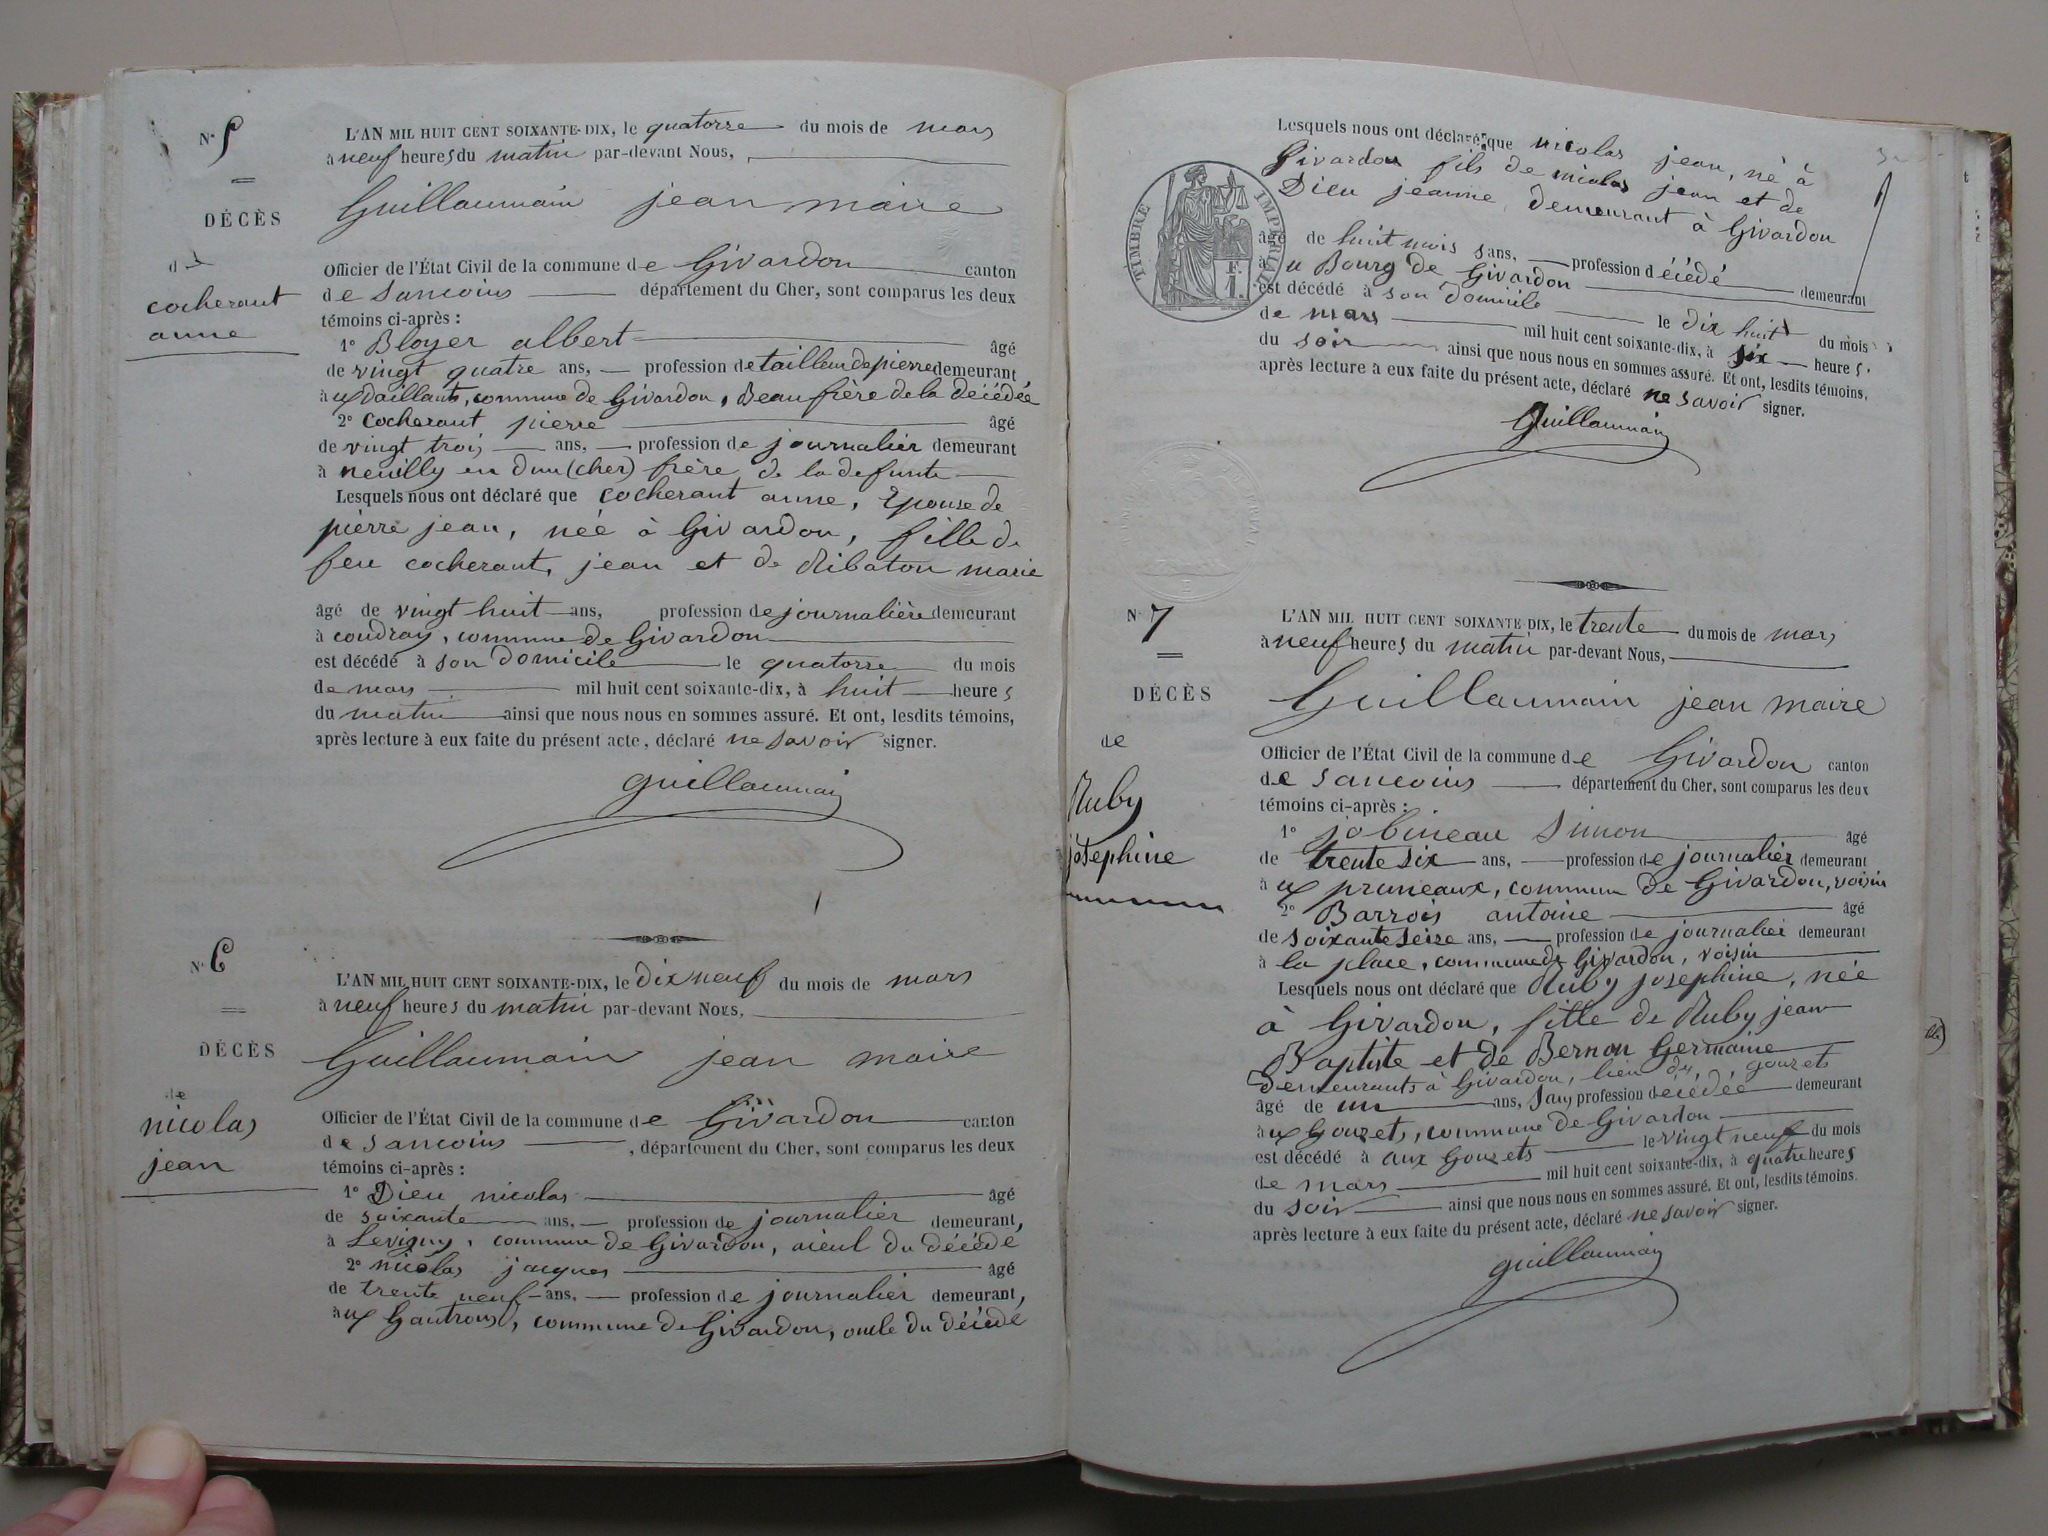 N° 5
DÉCÈS
de
cocherant
anne
L'AN MIL HUIT CENT SOIXANTE-DIX, le quatorse du mois de mars
à neuf heures du matin par-devant Nous,
Guillaumain jean maire
Officier de l'État Civil de la commune de Givardon canton
de Sancoins département du Cher, sont comparus les deux
témoins ci-après :
1° Bloyer albert âgé
de vingt quatre ans, profession de tailleur de pierre demeurant
à ux daillants, commune de Givardon, Beau frère de la décédée
2° cocherant pierre âgé
de vingt trois ans, profession de journalier demeurant
à neuilly en dun (cher) frère de la defunte
Lesquels nous ont déclaré que cocherant anne, Epouse de
pierre jean, née à Givardon, fille de
feu cocherant, jean et de Ribaton marie
âgé de vingt huit ans, profession de journalière demeurant
à coudray, commune de Givardon
est décédé à son domicile le quatorse du mois
de mars mil huit cent soixante-dix, à huit heures
du matin ainsi que nous nous en sommes assuré. Et ont, lesdits témoins,
après lecture à eux faite du présent acte, déclaré ne savoir signer.
guillaumain
N° 6
DÉCÈS
de
nicolas
jean
L'AN MIL HUIT CENT SOIXANTE-DIX, le dix neuf du mois de mars
à neuf heures du matin par-devant Nous,
Guillaumain jean maire
Officier de l'État Civil de la commune de Givardon canton
de Sancoins, département du Cher, sont comparus les deux
témoins ci-après :
1° Dieu nicolas âgé
de soixante ans, profession de journalier demeurant,
à Levigny, commune de Givardon, aieul du décédé
2° nicolas jacques âgé
de trente neuf ans, profession de journalier demeurant,
à ux Gautrons, commune de Givardon, oncle du décédé
Lesquels nous ont déclaré que nicolas jean, né à
Givardon fils de nicolas jean et de
Dieu jeanne, demeurant à Givardon
TIMBRE IMPERIAL
F.
1.
âgé de huit mois sans, profession décédé demeurant
à u Bourg de Givardon
est décédé à son domicile le dix huit du mois
de mars mil huit cent soixante-dix, à six heures
du soir ainsi que nous nous en sommes assuré. Et ont, lesdits témoins,
après lecture à eux faite du présent acte, déclaré ne savoir signer.
Guillaumain
N° 7
DÉCÈS
de
Ruby
josephine
L'AN MIL HUIT CENT SOIXANTE DIX, le trente du mois de mars
à neuf heures du matin par-devant Nous,
Guillaumain jean maire
Officier de l'État Civil de la commune de Givardon canton
de Sancoins département du Cher, sont comparus les deux
témoins ci-après :
1° jobineau Simon âgé
de trente six ans, profession de journalier demeurant
à ux pruneaux, commune de Givardon, voisin
2° Barrois antoine âgé
de soixante seise ans, profession de journalier demeurant
à la place, commune de Givardon, voisin
Lesquels nous ont déclaré que Ruby josephine, née
à Givardon, fille de Ruby jean
Baptiste et de Bernon Germaine
Demeurants à Givardon, lieu des gouzets
âgé de un ans, sans profession décédée demeurant
à ux Gouzets, commune de Givardon
est décédé à aux Gouzets le vingt neuf du mois
de mars mil huit cent soixante-dix, à quatre heures
du soir ainsi que nous nous en sommes assuré. Et ont, lesdits témoins.
après lecture à eux faite du présent acte, déclaré ne savoir signer.
guillaumain